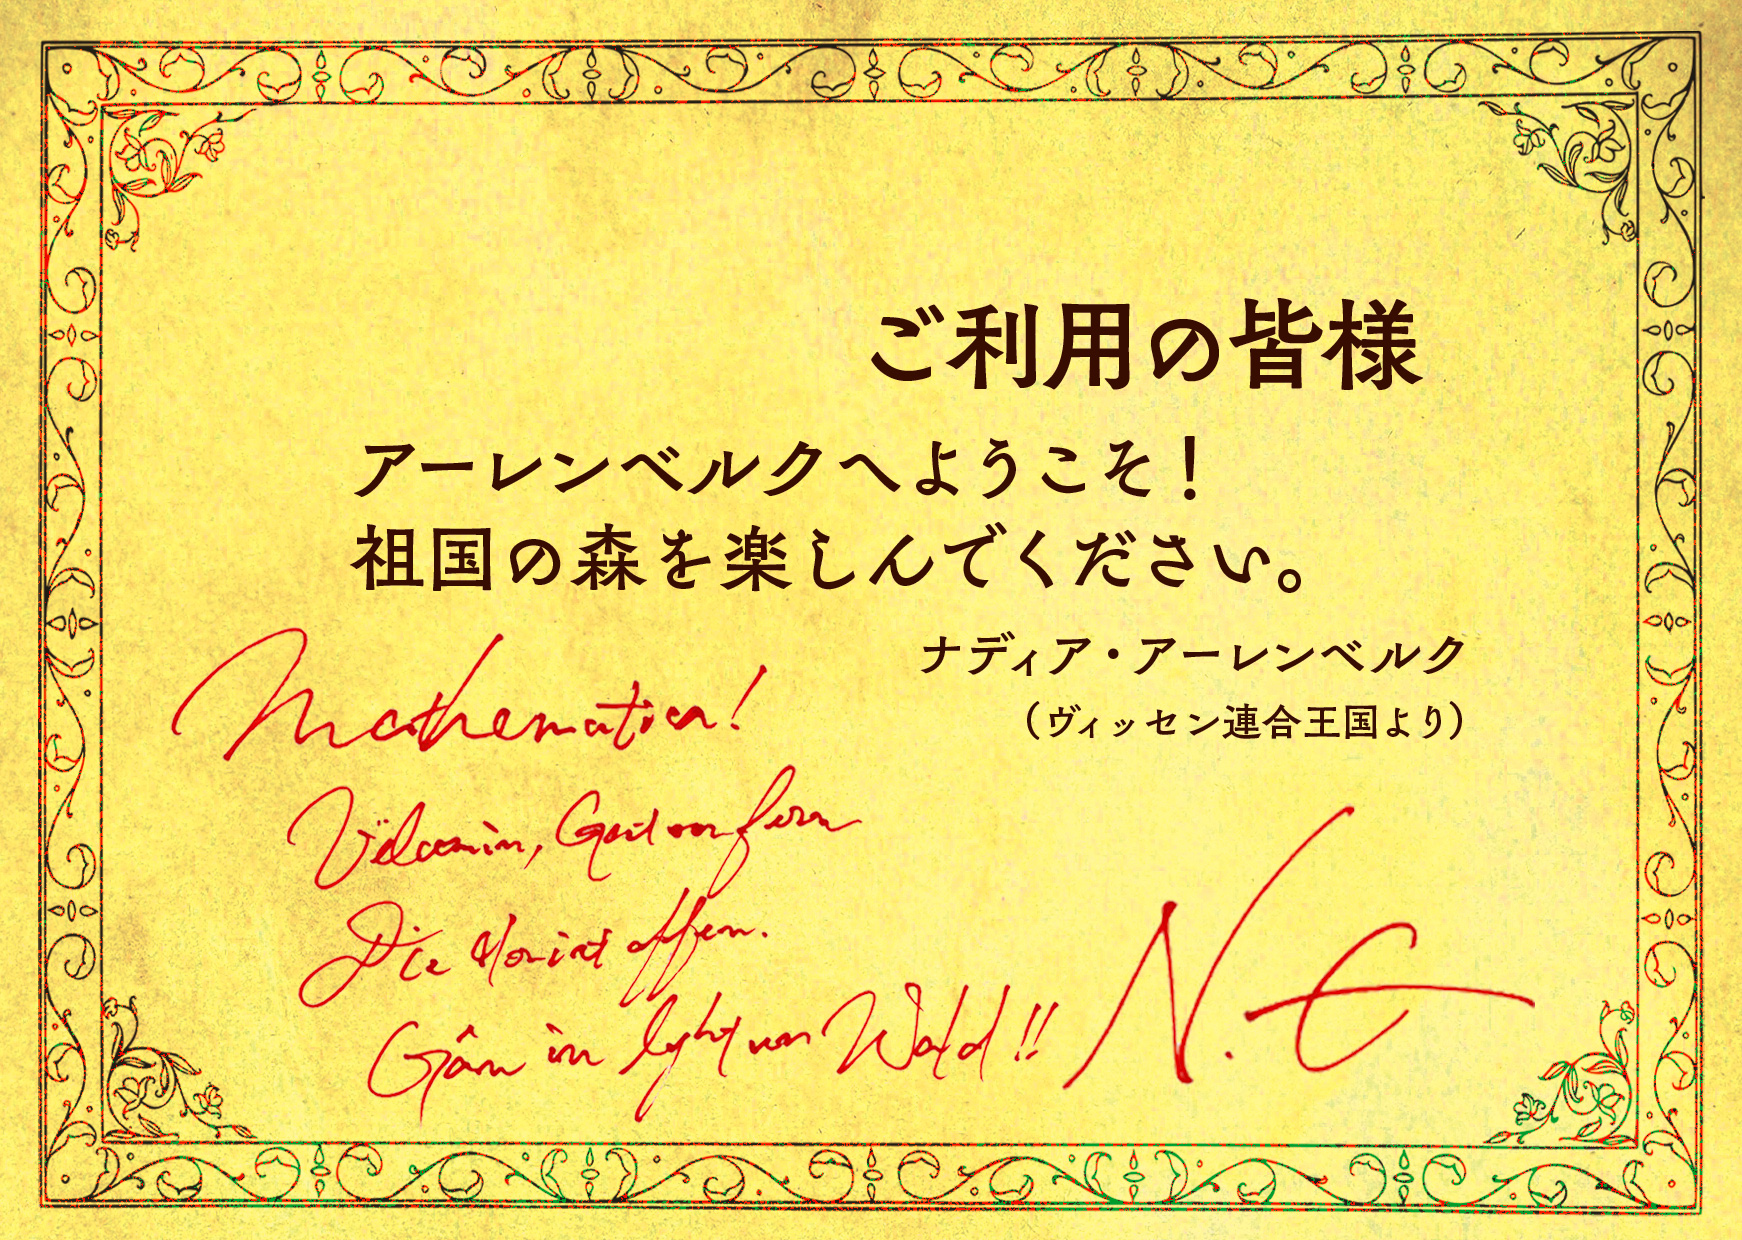 ご利用の皆様
アーレンベルクへようこそ！
祖国の森を楽しんでください。
ナディア・アーレンベルク
（ヴィッセン連合王国より）
Mathematica!
Die offen.
in Wald!!